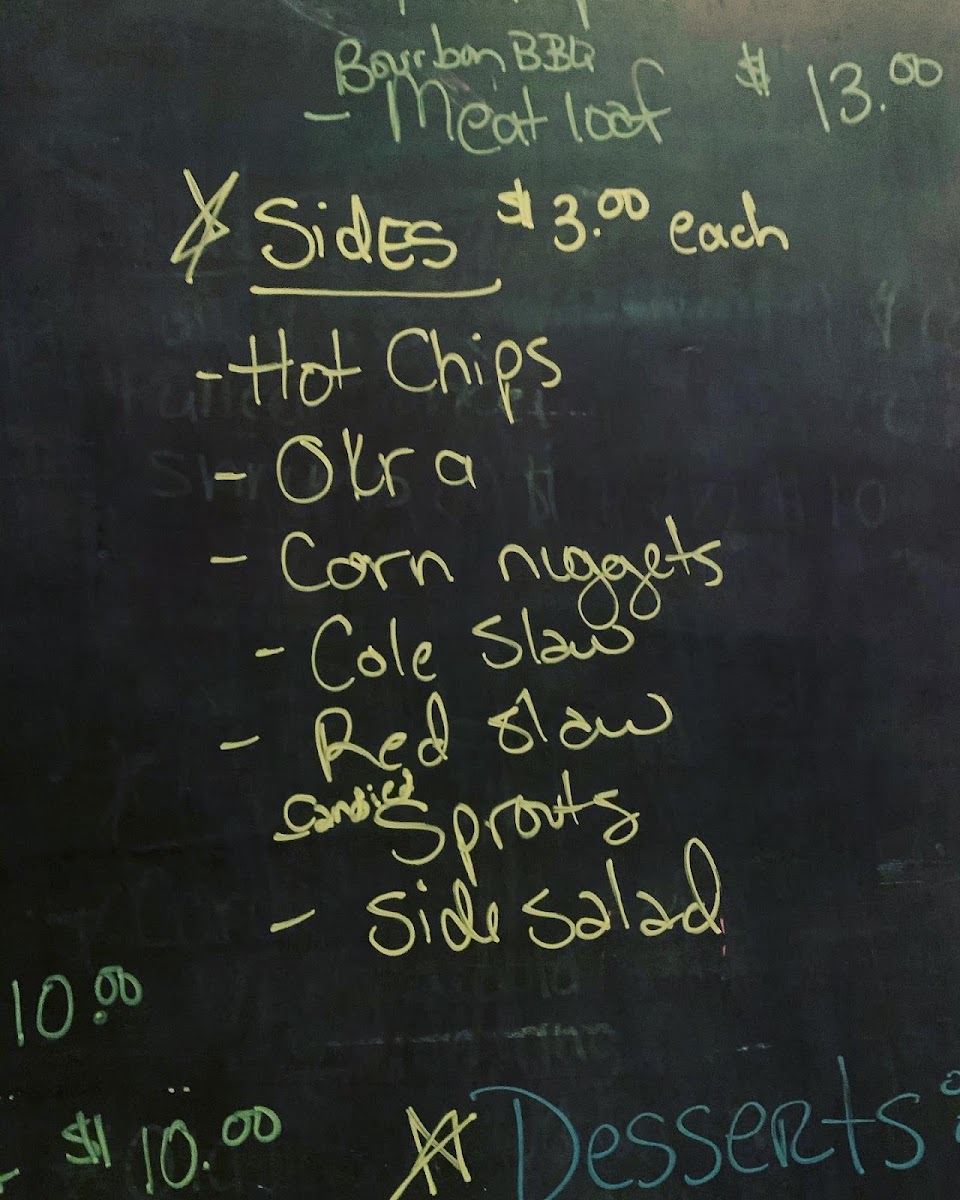 Bourbon BBQ
- Meat loaf $ 13.00
Sides $3.00 each
- Hot Chips
- Okra
- Corn nuggets
- Cole Slaw
- Red slaw
- Candied Sprouts
- Side Salad
10.00
$10.00
Desserts